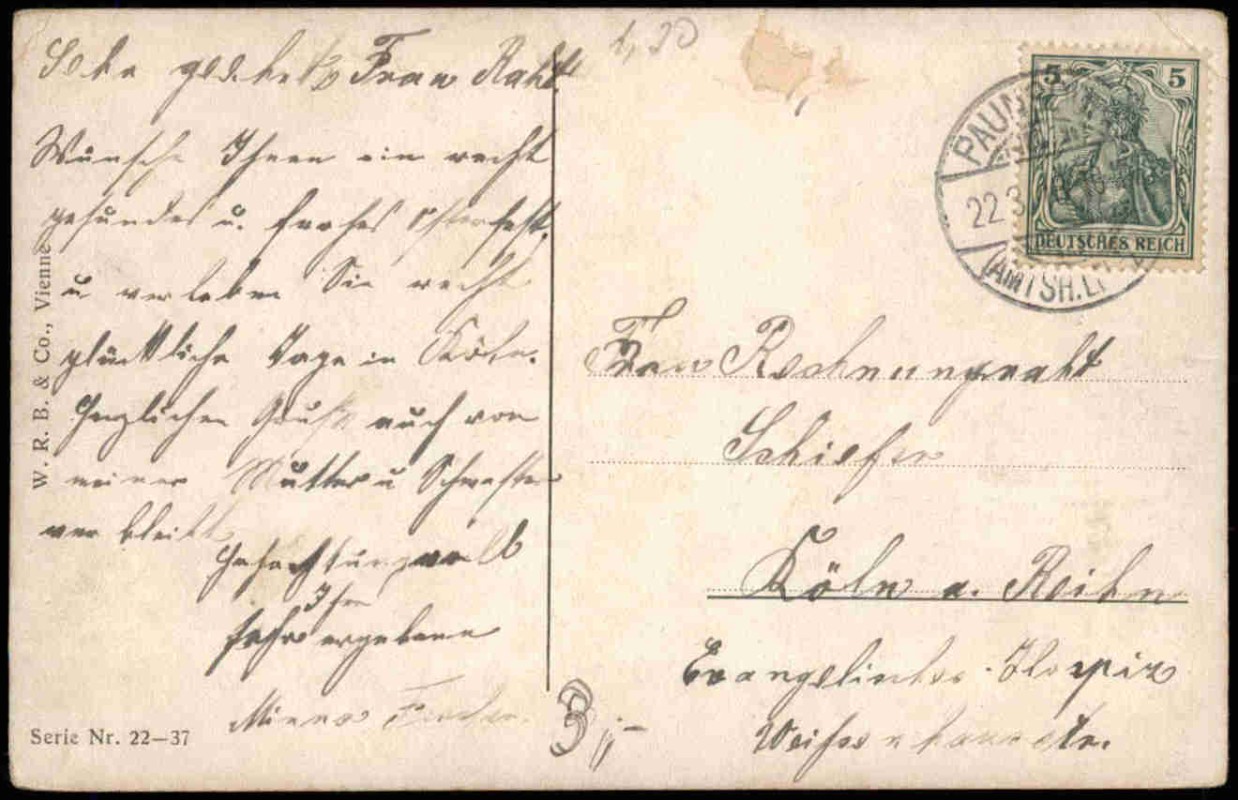 Sehr geehrte Frau Raht!
Wünsche Ihnen ein recht
gesundes u. frohes Osterfest.
u verleben Sie recht
glückliche Tage in Köln.
Herzlichen Gruß auch von
meiner Mutter u Schwester
bleibt
Hochachtungsvoll
Ihre
sehr ergebene
Minna
W. R. B. & Co., Vienne
Serie Nr. 22–37
1,20
3,-
5 5
DEUTSCHES REICH
PAUNS
22 3
(AMTSH. L
Frau Rechnungsraht
Schiefer
Köln a. Reihn
Evangelisches Hospiz